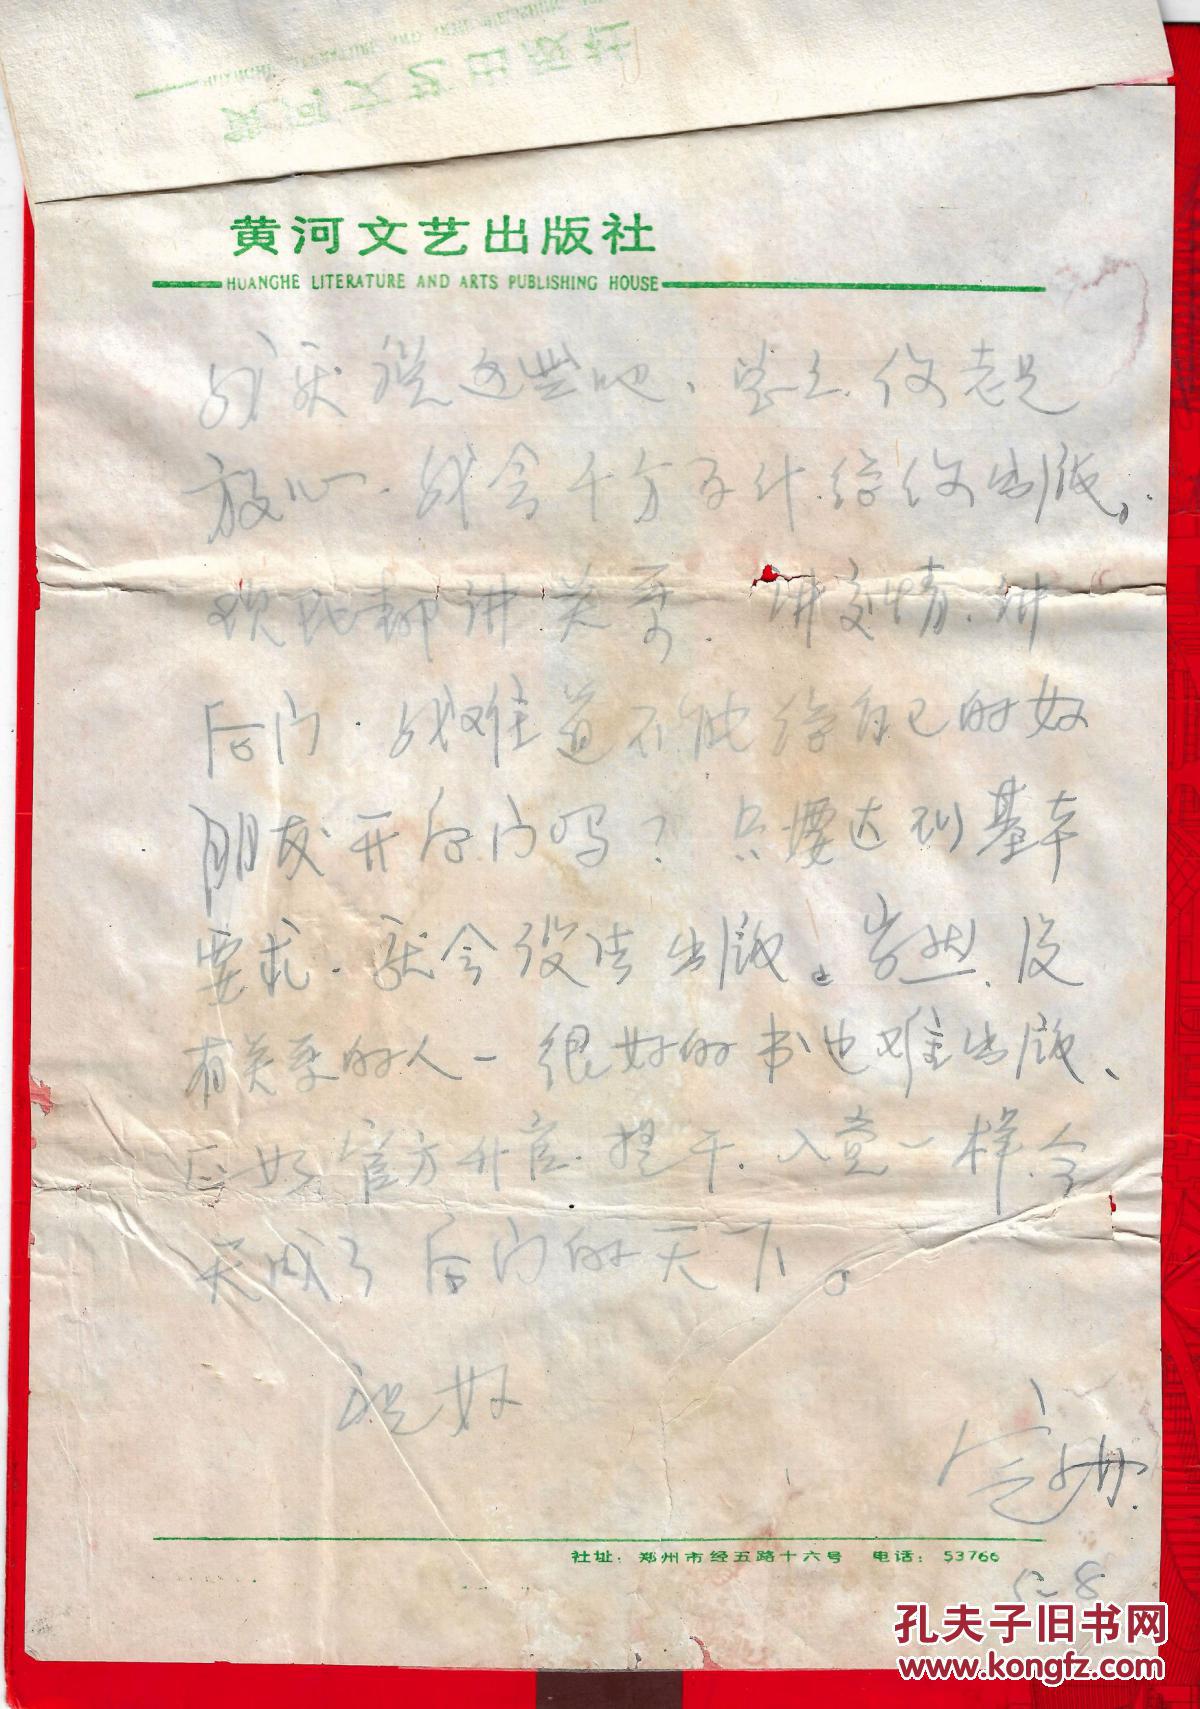 黄河文艺出版社
HUANGHE LITERATURE AND ARTS PUBLISHING HOUSE
黄河文艺出版社
HUANGHE LITERATURE AND ARTS PUBLISHING HOUSE
我就说这些吧、总之、你老兄
放心.我会千方百计给你出版。
现在都讲关系、讲交情、讲
后门.我难道不能给自己的好
朋友开后门吗？只要达到基本
要求.就会设法出版。当然、没
有关系的人一很好的书也难出版、
正如官方升官.提干.入党一样.今
天成了后门的天下。
祝好
社址：郑州市经五路十六号 电话：53766
12-8
孔夫子旧书网
www.kongfz.com